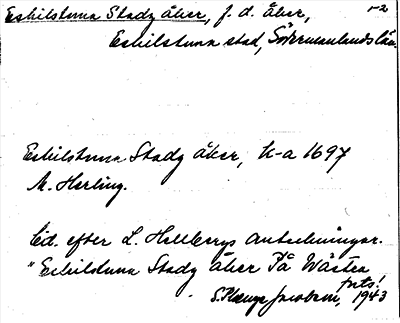 Eskilstuna Stadz åker, f. d. åker, -2
Eskilstuna stad, Södermanlands län.
Eskilstuna Stadz åker, K-a 1697
M. Herling.
Ed. efter L. Hellbergs anteckningar.
"Eskilstuna Stadz åker På Wästra
forts!
S. Jacobson, 1943